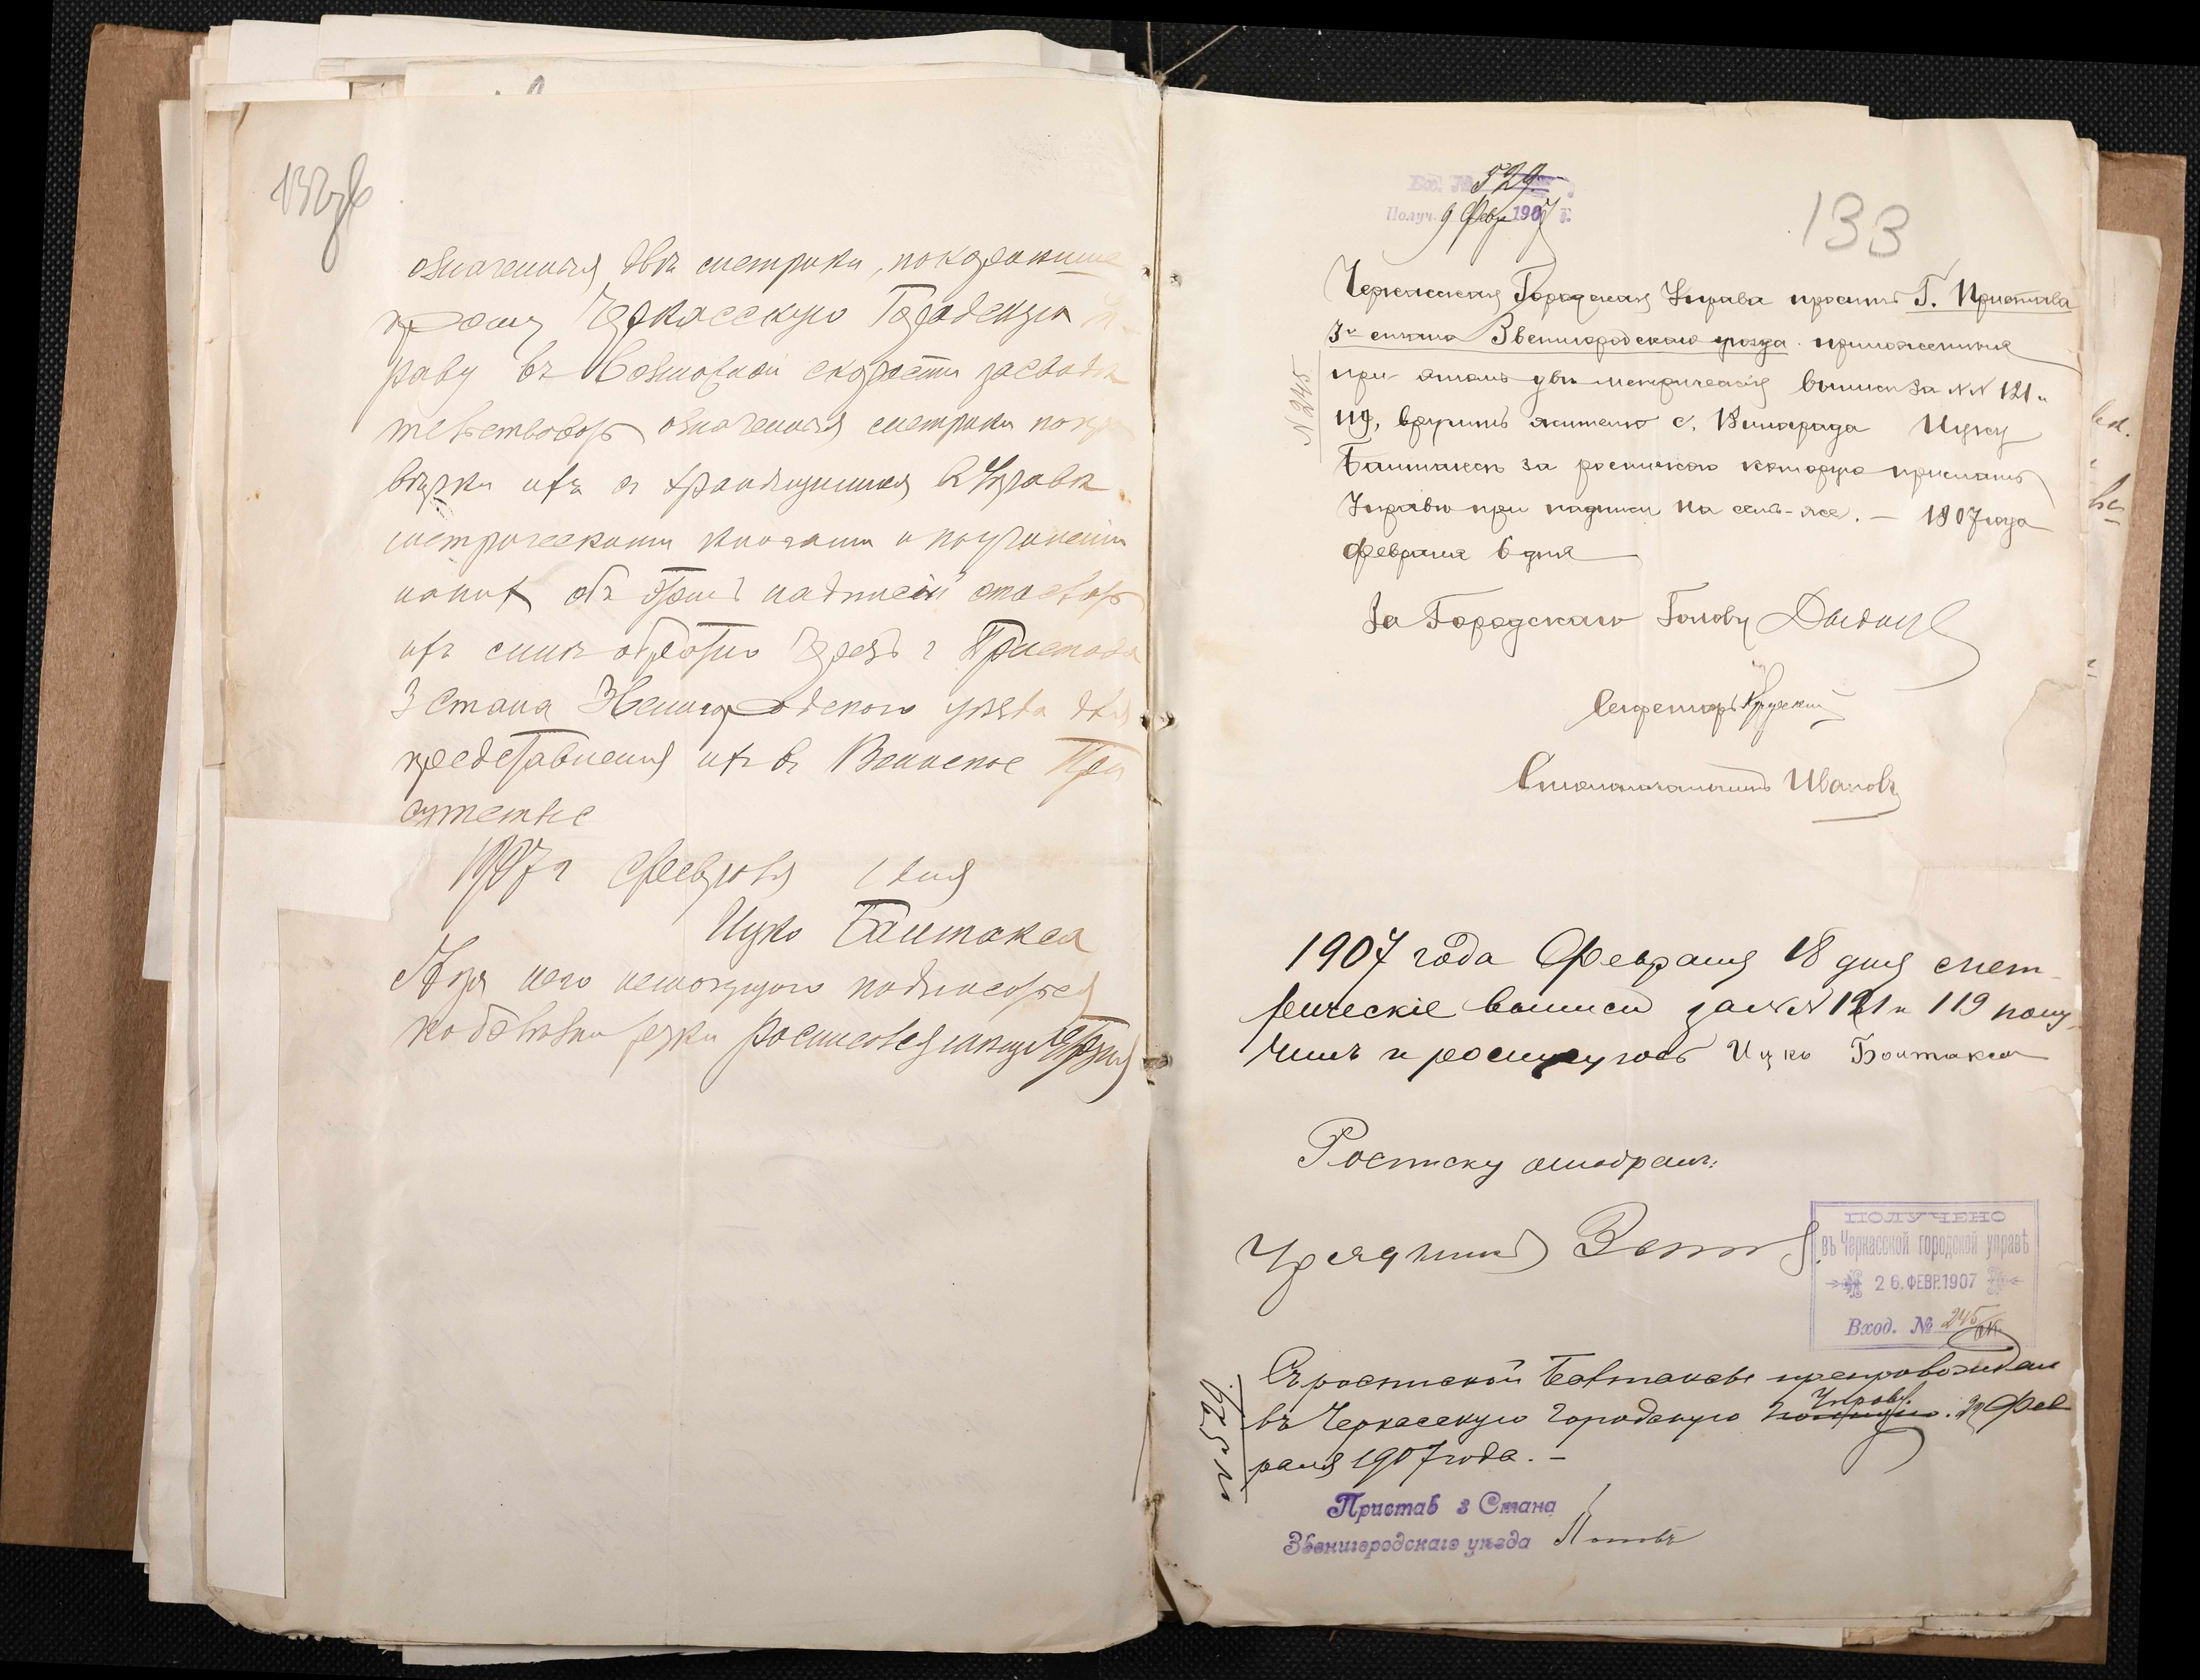 132об
означенныя две метрики, покорнише
прошу Черкасскую Городскую Уп-
раву въ возможной скорости засвидѣ
тельствовать означенныя метрики по
вѣрки ихъ съ хранящимися въ Управѣ
метрическими книгами и по учинении
на них объ этомъ надписей
ихъ мнѣ обратно чрезъ г Пристава
3 стана Звенигородского уезда для
представления ихъ въ Воинское При
сутствие
1907 г февраля 1 дня
Ицко Баштакса
А за него немогущого подписаться
по его прозбѣ росписовался
133
Вх. № 529
Получ. 9 Февр 1907 г.
Черкасская Городская Управа проситъ Г. Пристава
3го стана Звенигородскаго уѣзда приложенныя
N 245
при этомъ двѣ метрическія выписи за NN 121 и
119, вручить жителю с. Винограда Ицку
Баштаксѣ за роспиской которую прислать
Управѣ при надписи на семъ-же. — 1907 года
февраля 6 дня
За Городскаго Голову
Секретарь
Столоначальникъ Ивановъ
1907 года Февраля 18 дня мет-
рическіе выписи за NN 121 и 119 полу-
чилъ и росписуюсь Ицко Боштакса
Росписку отобралъ:
Урядникъ
ПОЛУЧЕНО
въ Черкасской городской управѣ
26. ФЕВР. 1907
Вход. № 245
Съ роспиской Бавтаксы препровождаю
въ Черкасскую городскую Управу. Фев
раля 1907 года. —
N 529.
Приставъ 3 Стана
Звенигородскаго уѣзда